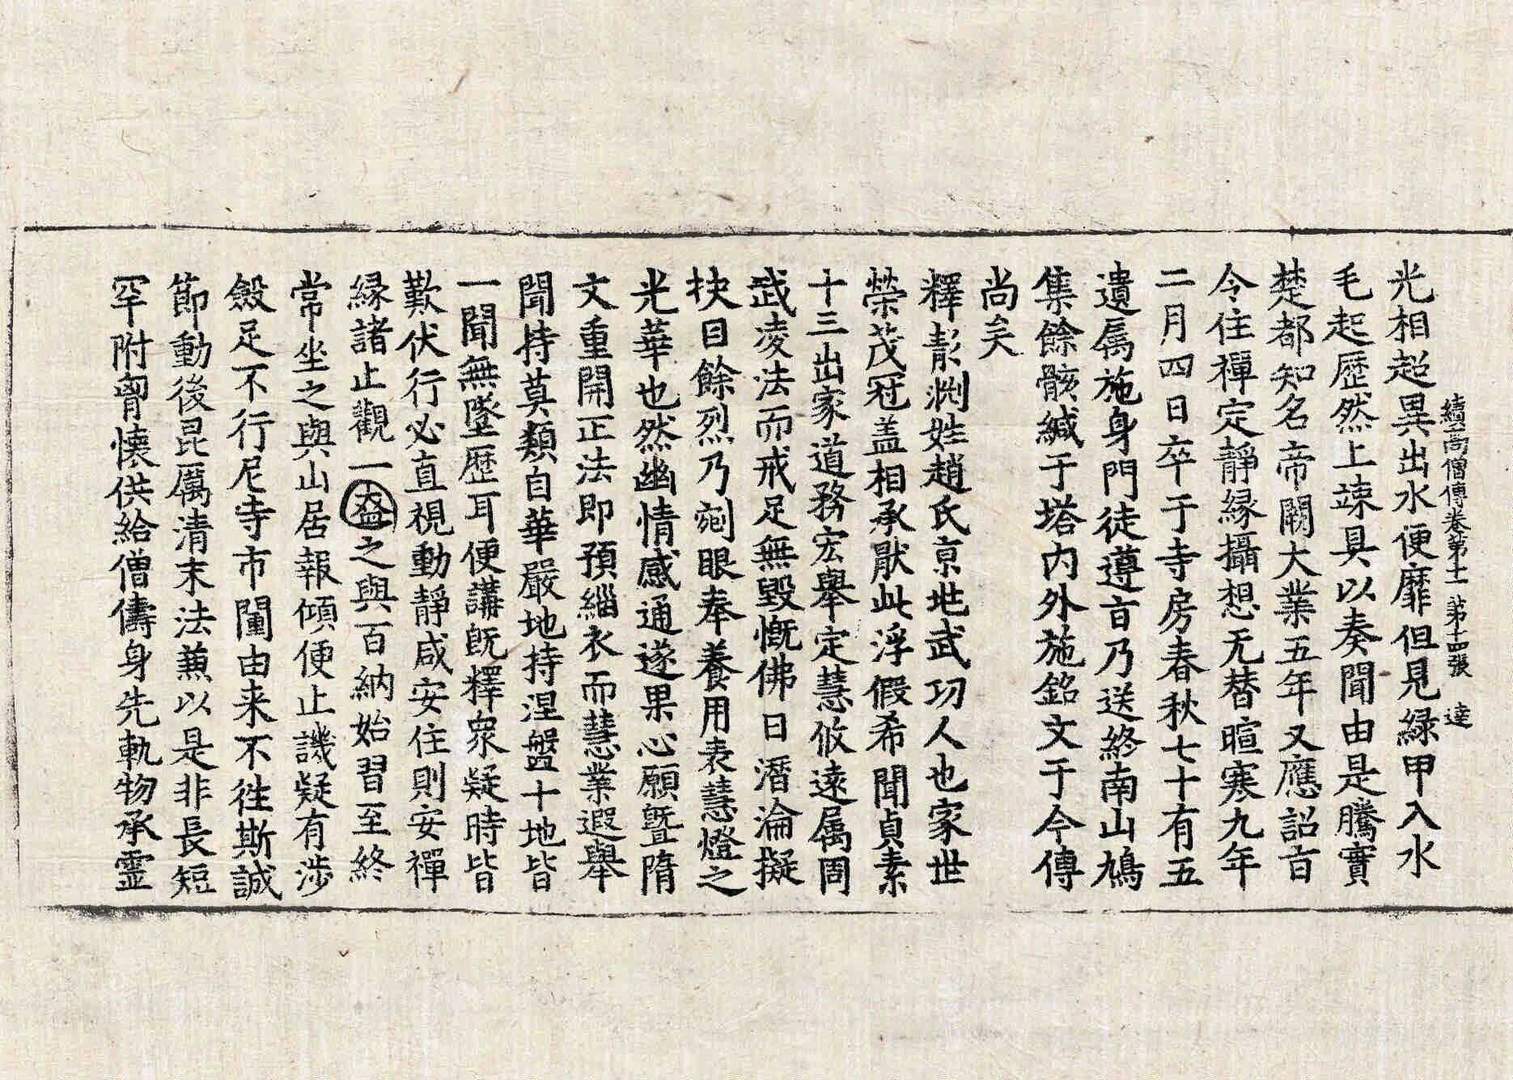 續高僧傳卷第十一 第十四張 達
光相超異出水便靡但見緑甲入水
毛起歷然上竦具以奏聞由是騰實
楚都知名帝闕大業五年又應詔旨
令住禪定靜緣攝想无替暄寒九年
二月四日卒于寺房春秋七十有五
遺属施身門徒遵旨乃送終南山鳩
集餘骸緘于塔內外施銘文于今傳
尚矣
釋渕姓趙氏京地武功人也家世
榮茂冠盖相承猒此浮假希聞貞素
十三出家道務宏舉定慧攸遠属周
武凌法而戒足無毀慨佛日潛淪擬
抉目餘烈乃剜眼奉養用表慧燈之
光華也然幽情感通遂果心願暨隋
文重開正法即預緇衣而慧業遐舉
聞持莫類自華嚴地持涅盤十地皆
一聞無墜歷耳便講旣釋衆疑時皆
歎伏行必直視動靜咸安住則安禪
緣諸止觀一盋之與百納始習至終
常坐之與山居報傾便止譏疑有涉
斂足不行尼寺市闤由来不徃斯誠
節動後昆厲清末法兼以是非長短
罕附胷懷供給僧儔身先軌物承靈